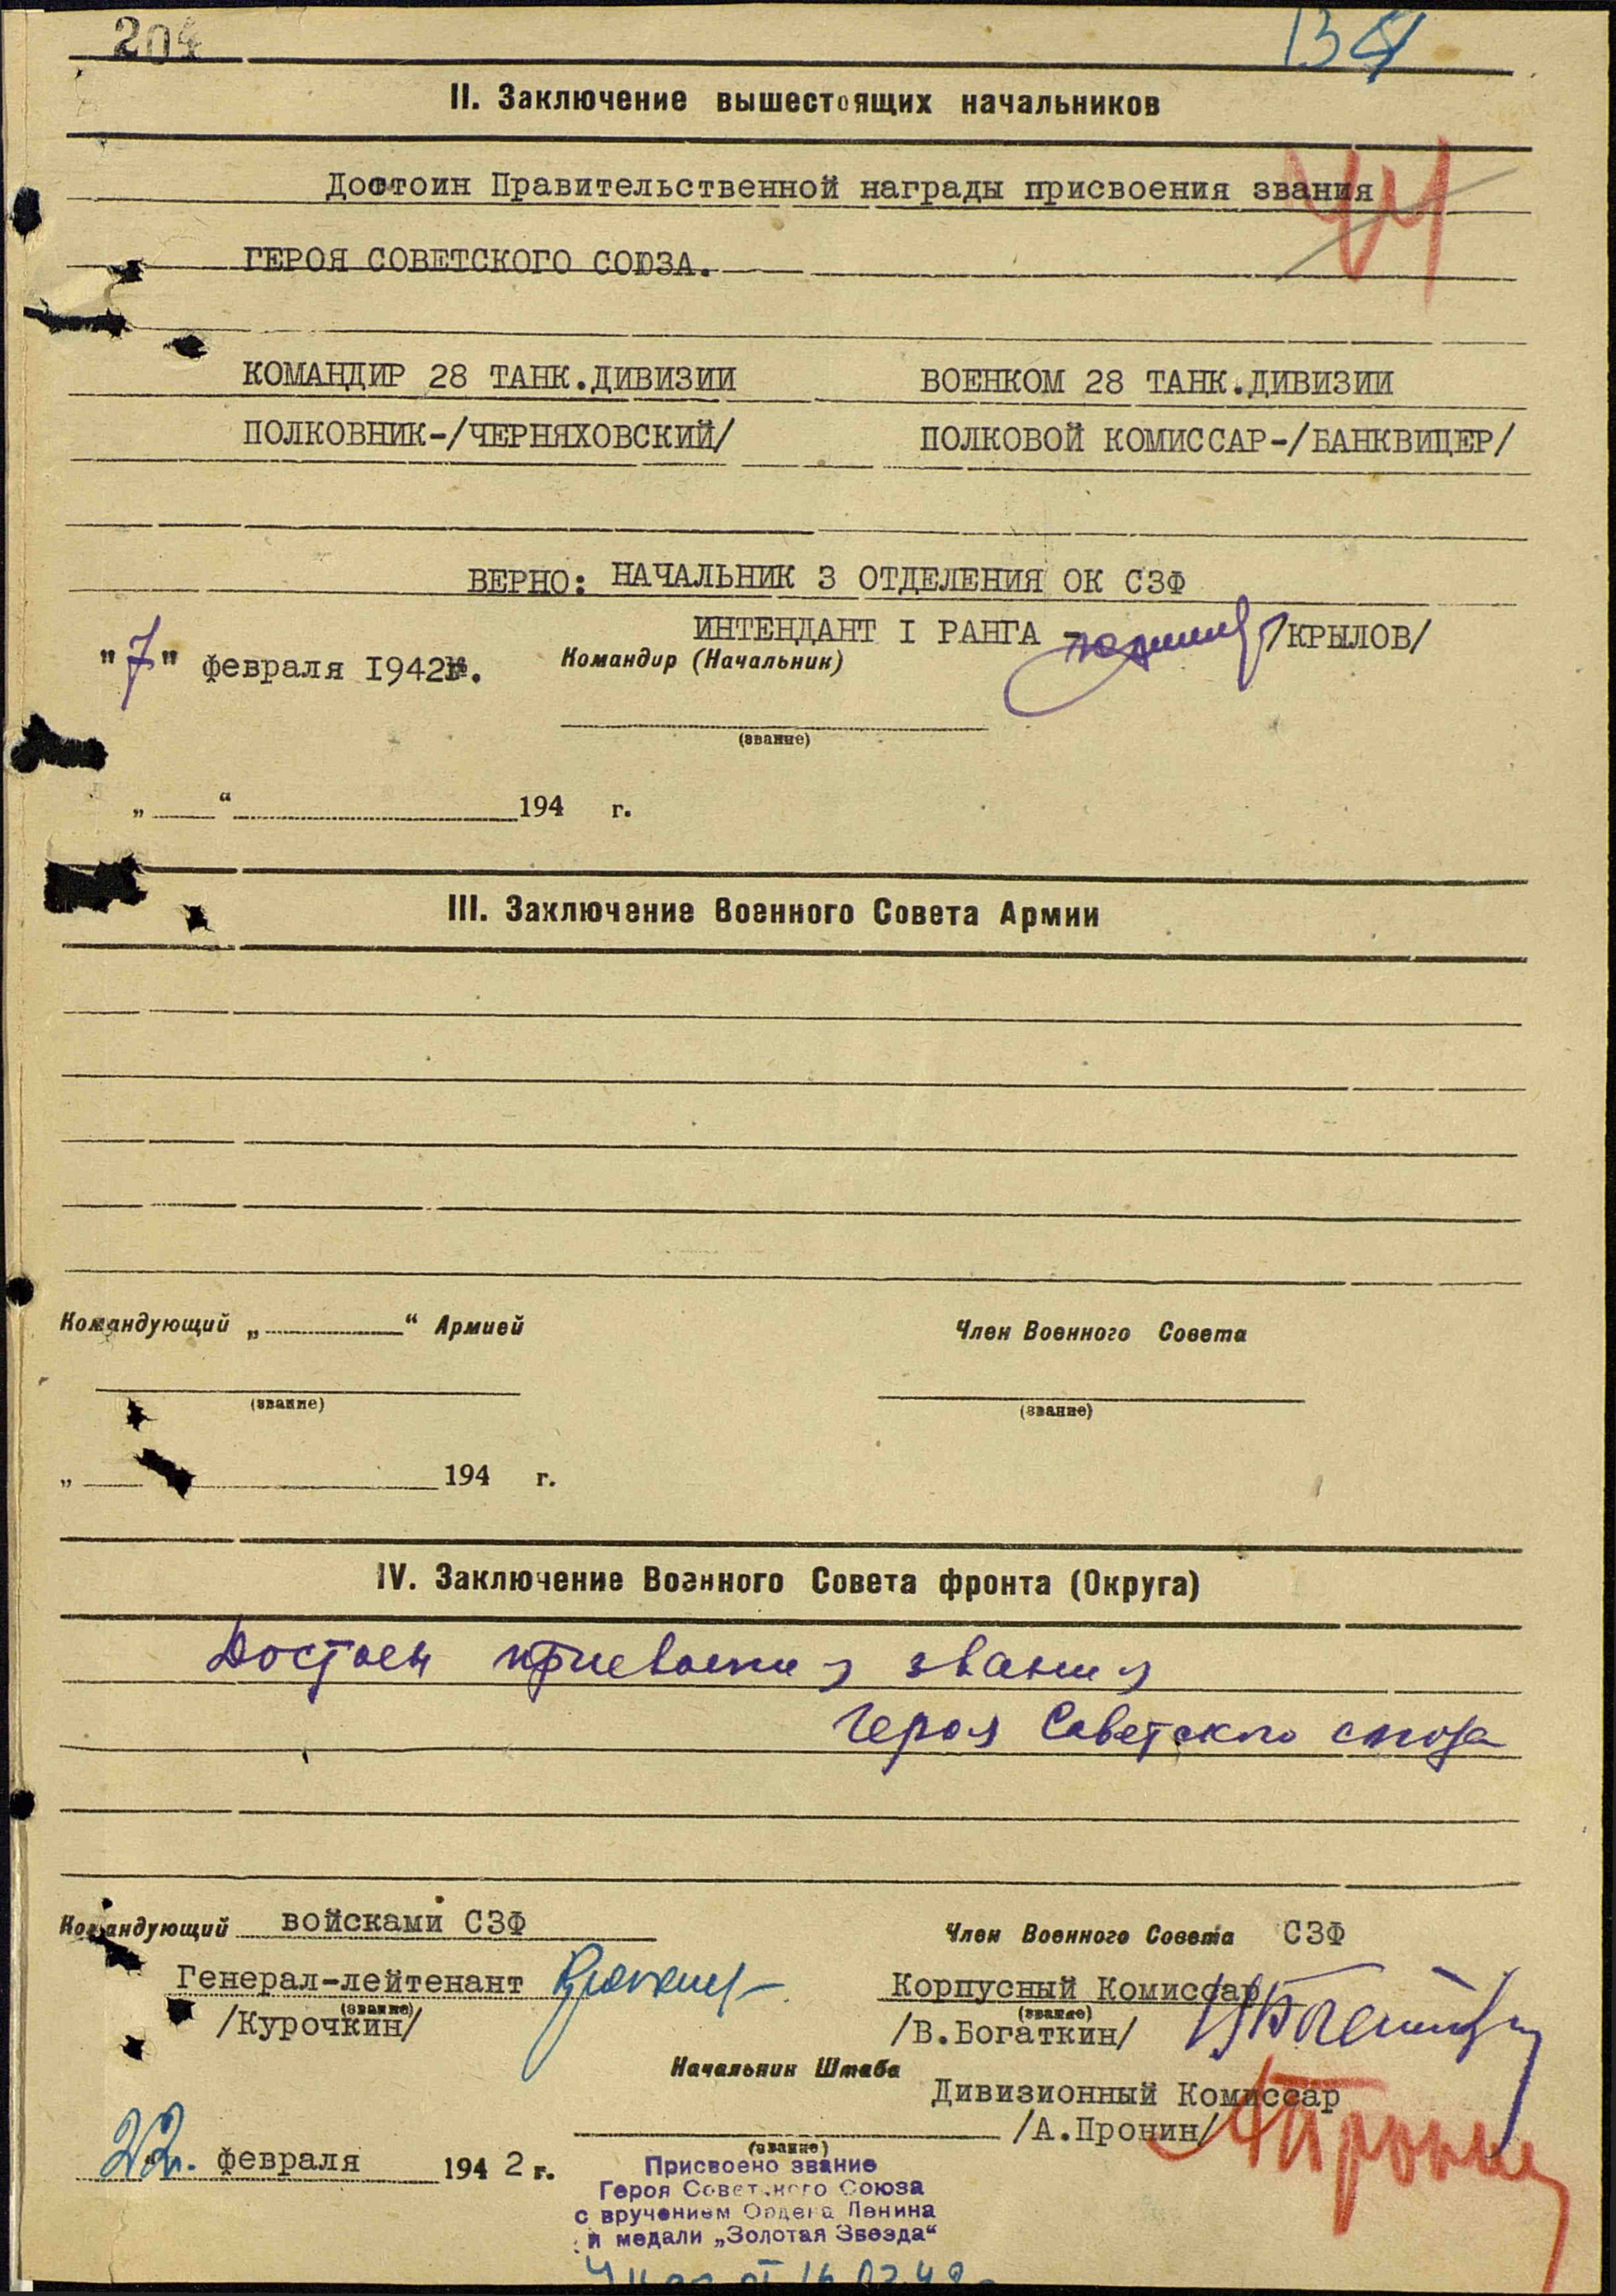 204
134
II. Заключение вышестоящих начальников
44
Достоин Правительственной награды присвоения звания
ГЕРОЯ СОВЕТСКОГО СОЮЗА.
КОМАНДИР 28 ТАНК.ДИВИЗИИ ВОЕНКОМ 28 ТАНК.ДИВИЗИИ
ПОЛКОВНИК-/ЧЕРНЯХОВСКИЙ/ ПОЛКОВОЙ КОМИССАР-/БАНКВИЦЕР/
ВЕРНО: НАЧАЛЬНИК 3 ОТДЕЛЕНИЯ ОК СЗФ
ИНТЕНДАНТ I РАНГА - /КРЫЛОВ/
"7" февраля 1942г. Командир (Начальник)
(звание)
„ “ 194 г.
III. Заключение Военного Совета Армии
Командующий „ “ Армией Член Военного Совета
(звание) (звание)
„ 194 г.
IV. Заключение Военного Совета фронта (Округа)
Достоен присвоения звания
Героя Советского союза
Командующий войсками СЗФ Член Военного Совета СЗФ
Генерал-лейтенант Корпусный Комиссар
(звание) (звание)
/Курочкин/ /В.Богаткин/
Начальник Штаба
Дивизионный Комиссар
/А.Пронин/ АПронин
(звание)
22. февраля 1942 г.
Присвоено звание
Героя Советского Союза
с вручением Ордена Ленина
и медали „Золотая Звезда“